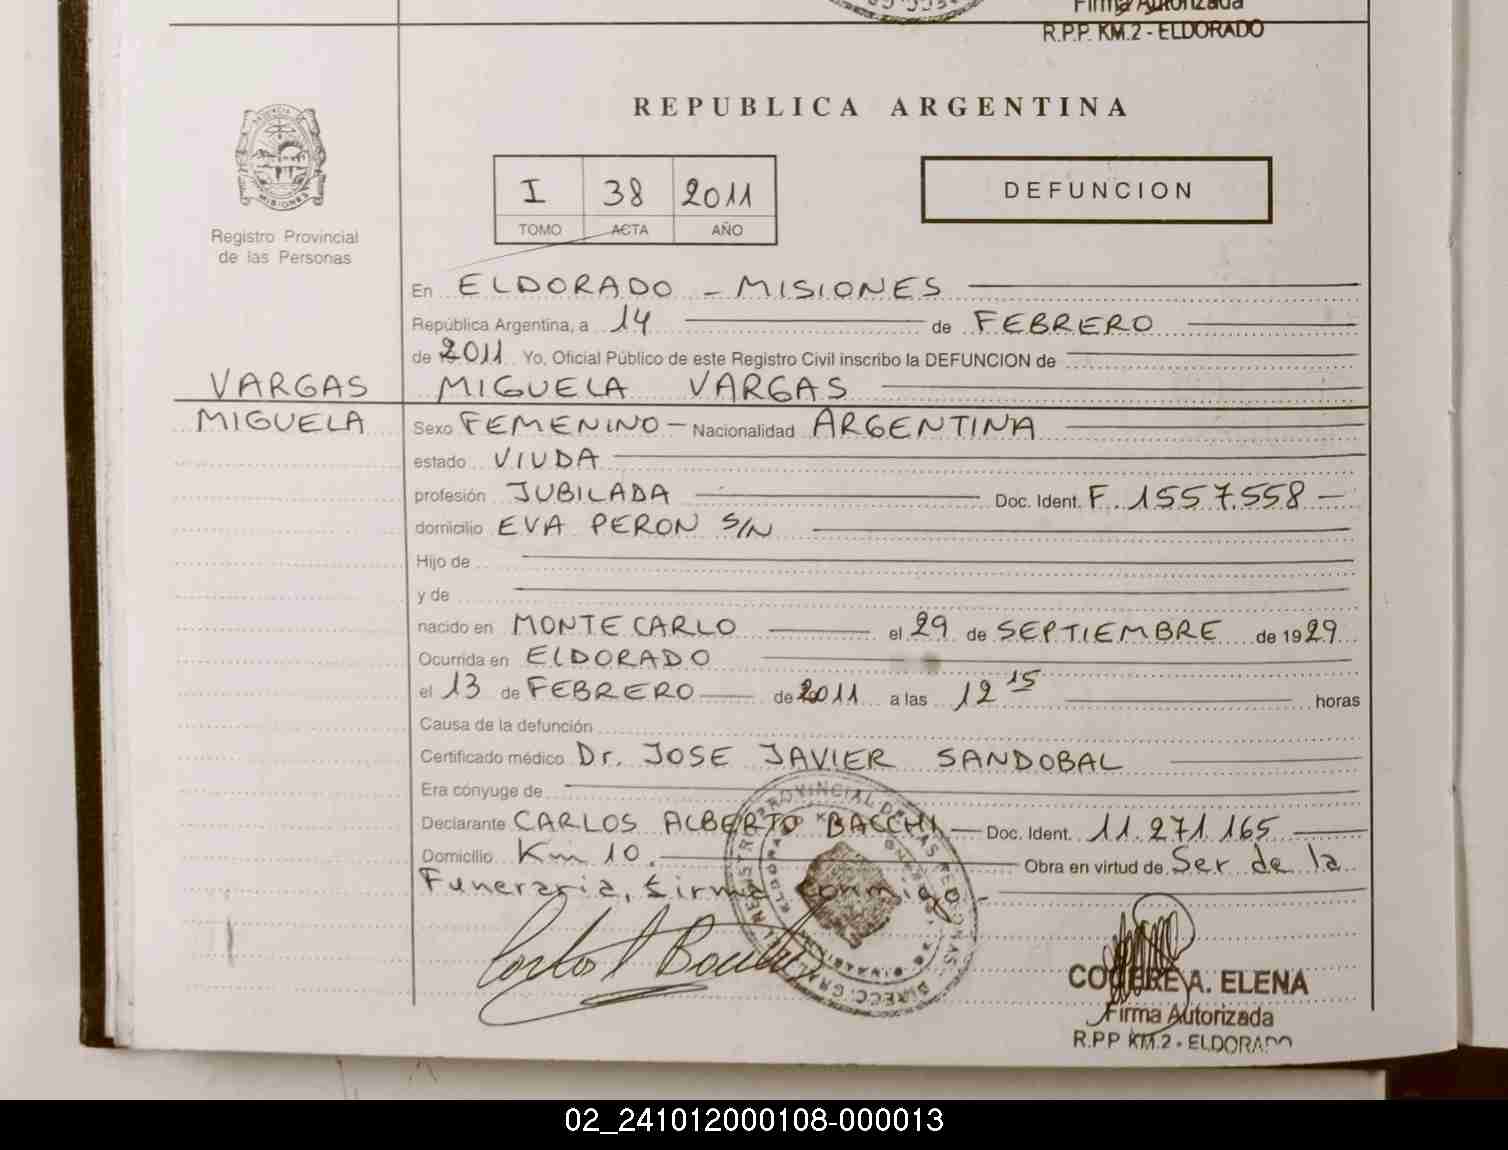 Firma Autorizada
R.P.P. KM.2 - ELDORADO
REPUBLICA ARGENTINA
PROVINCIA DE
MISIONES
Registro Provincial
de las Personas
I 38 2011
TOMO ACTA AÑO
DEFUNCION
En ELDORADO - MISIONES
República Argentina, a 14 de FEBRERO
de 2011 Yo, Oficial Público de este Registro Civil inscribo la DEFUNCION de
VARGAS MIGUELA VARGAS
MIGUELA Sexo FEMENINO - Nacionalidad ARGENTINA
estado VIUDA
profesión JUBILADA Doc. Ident. F. 1557.558 -
domicilio EVA PERON S/N
Hijo de
y de
nacido en MONTECARLO el 29 de SEPTIEMBRE de 1929
Ocurrida en ELDORADO
el 13 de FEBRERO de 2011 a las 12 15 horas
Causa de la defunción
Certificado médico Dr. JOSE JAVIER SANDOBAL
Era cónyuge de
Declarante CARLOS ALBERTO BACCHI - Doc. Ident. 11.271.165
Domicilio Km 10. Obra en virtud de Ser de la
Funeraria, firma conmigo
Carlos A Bacchi
A. ELENA
Firma Autorizada
R.PP KM.2 - ELDORADO
02_241012000108-000013